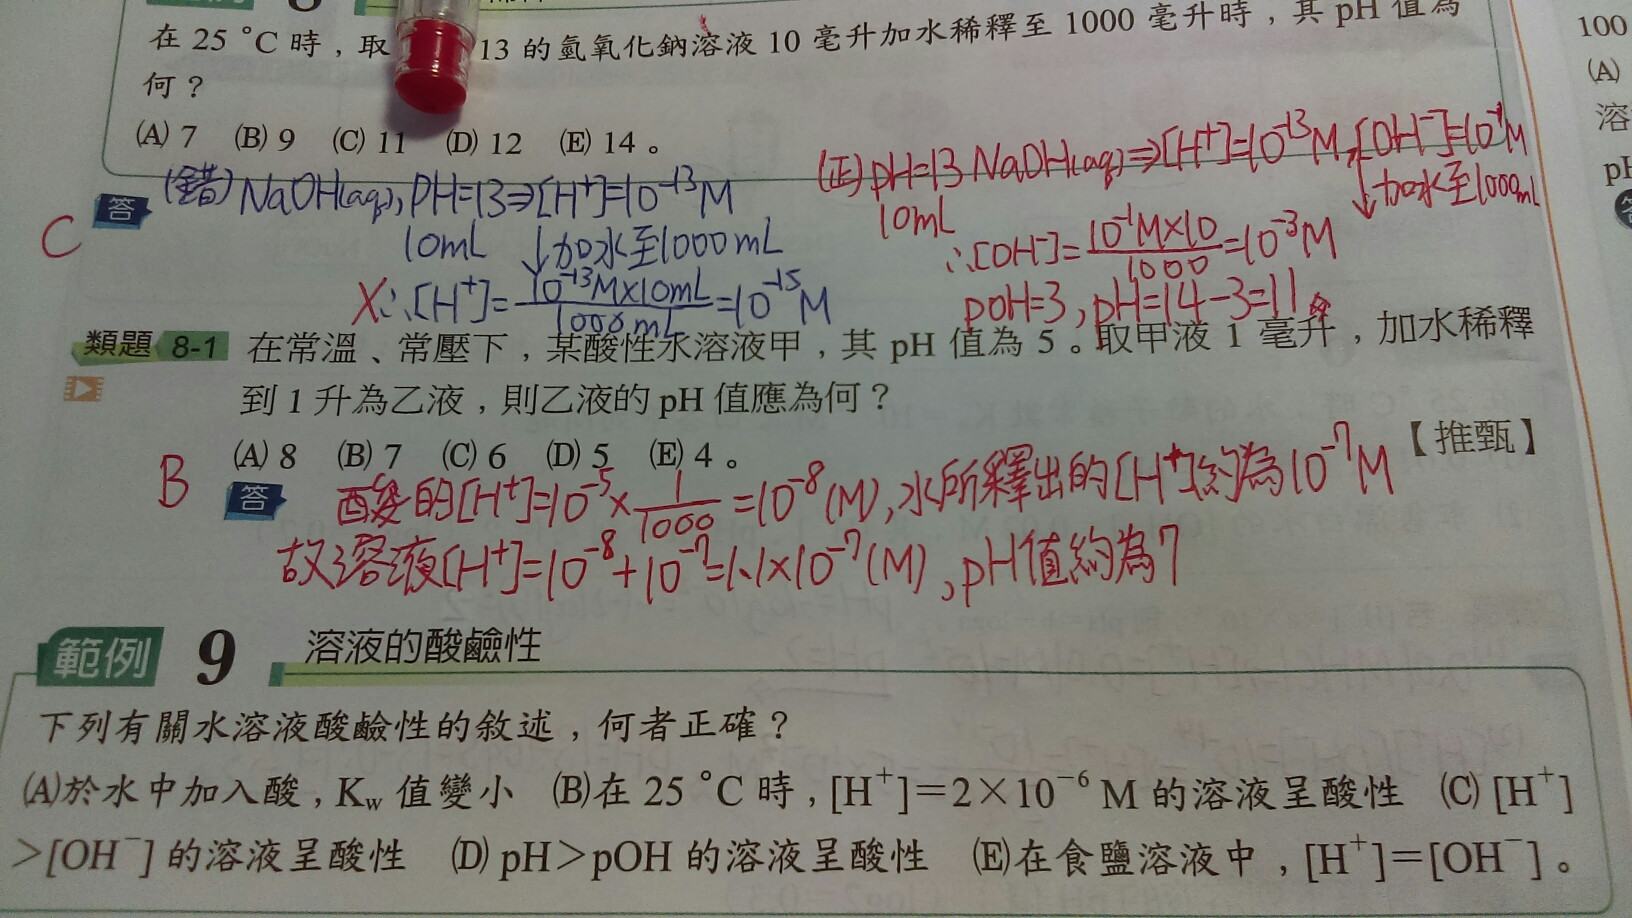 8
在 25 °C 時，取 13 的氫氧化鈉溶液 10 毫升加水稀釋至 1000 毫升時，其 pH 值為
何？
(A) 7 (B) 9 (C) 11 (D) 12 (E) 14。
C 答 (錯) NaOH(aq), PH=13⇒[H⁺]=10⁻¹³M
10mL ↓加水至1000mL
X∴[H⁺]=10⁻¹³M×10mL/1000mL=10⁻¹⁵M
(正) pH=13 NaOH(aq)⇒[H⁺]=10⁻¹³M,[OH⁻]=10⁻¹M
10mL ↓加水至1000mL
∴[OH⁻]=10⁻¹M×10/1000=10⁻³M
pOH=3, pH=14-3=11
類題 8-1 在常溫、常壓下，某酸性水溶液甲，其 pH 值為 5。取甲液 1 毫升，加水稀釋
到 1 升為乙液，則乙液的 pH 值應為何？
【推甄】
(A) 8 (B) 7 (C) 6 (D) 5 (E) 4。
B 答 酸的[H⁺]=10⁻⁵×1/1000=10⁻⁸(M),水所釋出的[H⁺]約為10⁻⁷M
故溶液[H⁺]=10⁻⁸+10⁻⁷=1.1×10⁻⁷(M), pH值約為7
範例 9 溶液的酸鹼性
下列有關水溶液酸鹼性的敘述，何者正確？
(A)於水中加入酸，Kw 值變小 (B)在 25 °C 時，[H⁺]=2×10⁻⁶ M 的溶液呈酸性 (C) [H⁺]
>[OH⁻] 的溶液呈酸性 (D) pH>pOH 的溶液呈酸性 (E)在食鹽溶液中，[H⁺]=[OH⁻]。
100
(A)
溶
pH